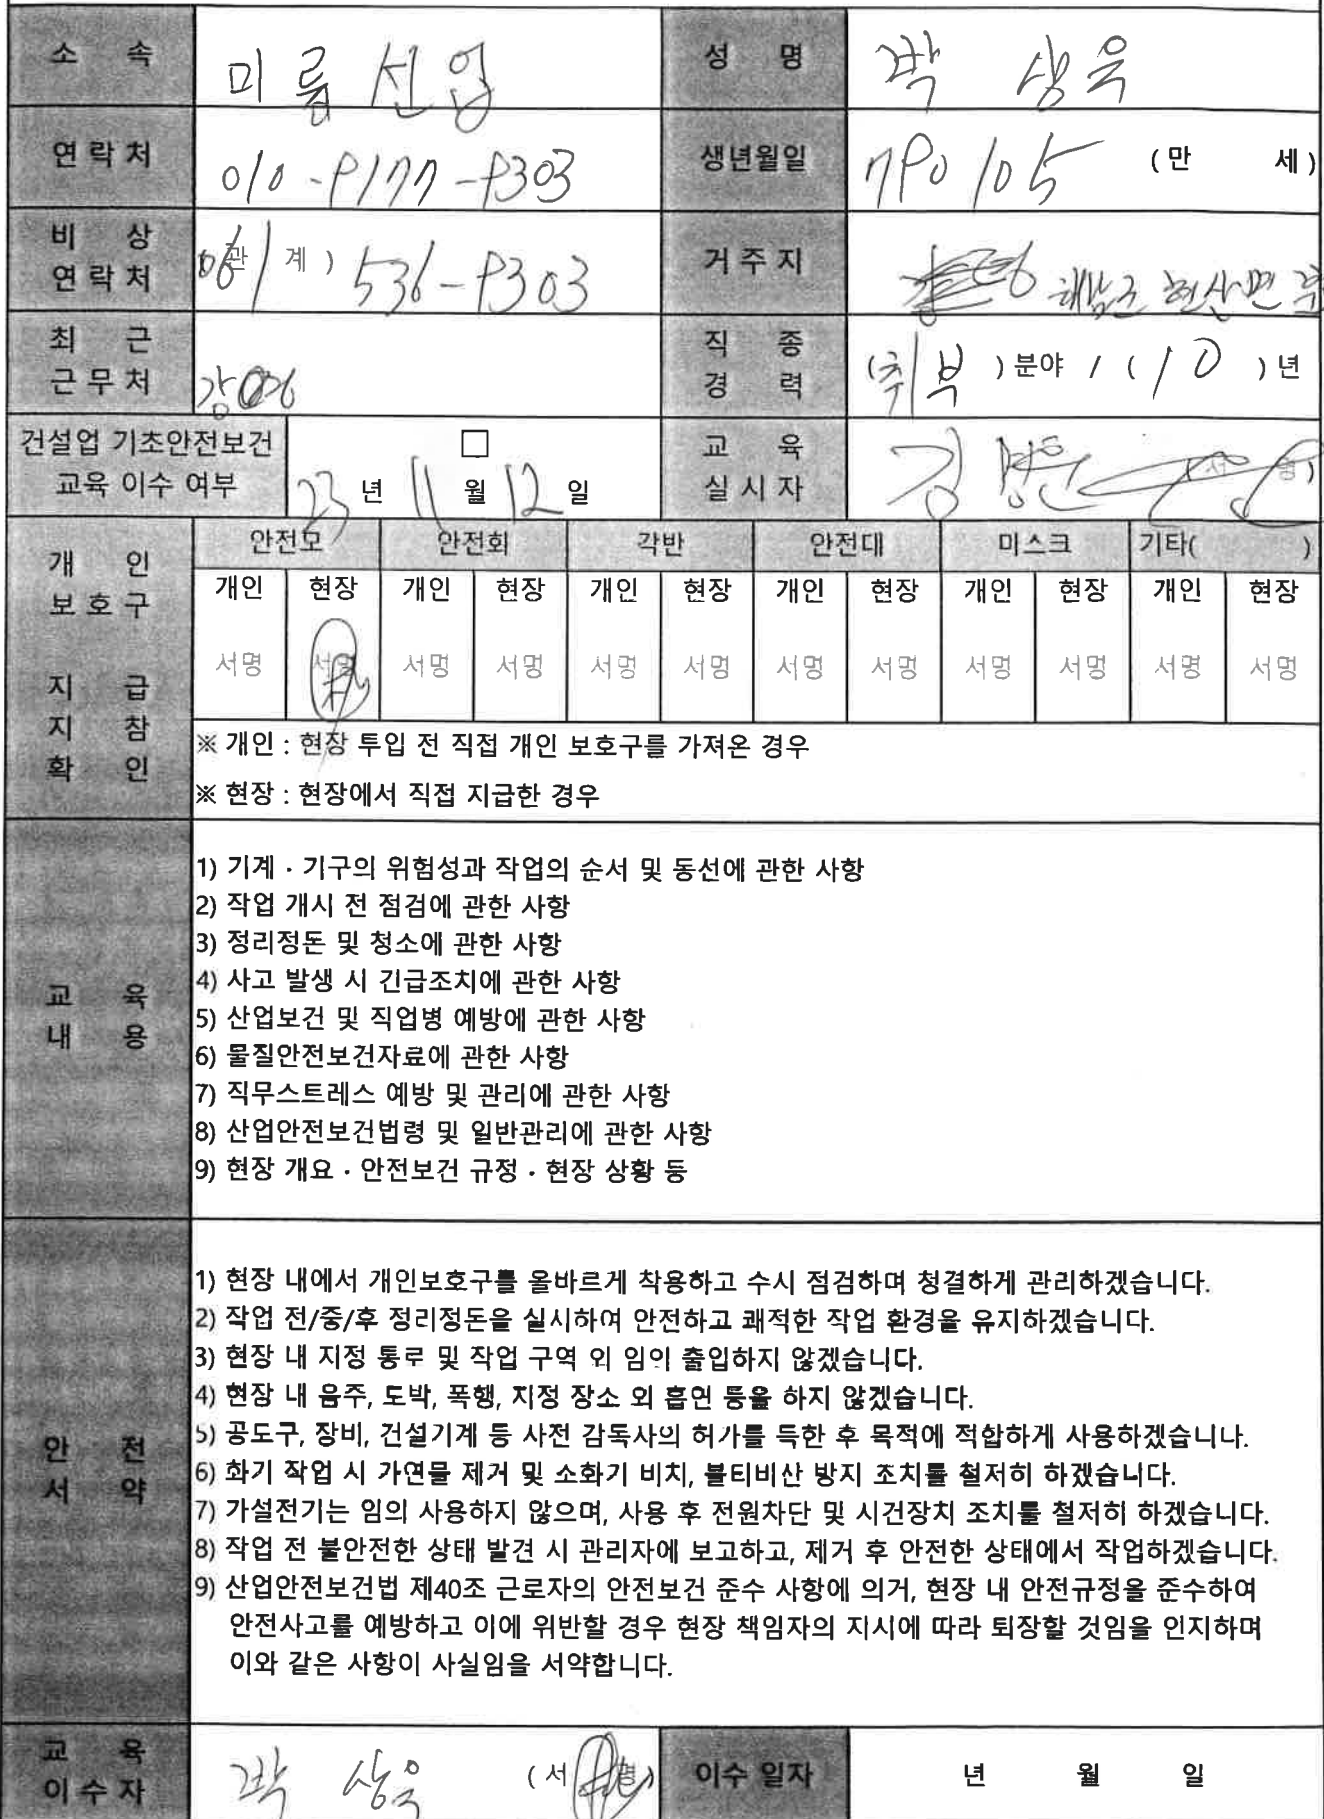 소 속 미름산업 성 명 박상욱
연락처 010-9177-9303 생년월일 790105 (만 세)
비 상 연락처 (관 계) 061 536-9303 거주지 해남군 현산면
최 근 근무처 직 종 경 력 (취부) 분야 / (10) 년
건설업 기초안전보건 교육 이수 여부 □ 23년 11월 12일 교 육 실시자 김 (서 명)
개 인 보호구 지 급 지 참 확 인
안전모 안전화 각반 안전대 마스크 기타( )
개인 현장 개인 현장 개인 현장 개인 현장 개인 현장 개인 현장
서명 서명 서명 서명 서명 서명 서명 서명 서명 서명 서명 서명
※ 개인 : 현장 투입 전 직접 개인 보호구를 가져온 경우
※ 현장 : 현장에서 직접 지급한 경우
교 육 내 용
1) 기계 · 기구의 위험성과 작업의 순서 및 동선에 관한 사항
2) 작업 개시 전 점검에 관한 사항
3) 정리정돈 및 청소에 관한 사항
4) 사고 발생 시 긴급조치에 관한 사항
5) 산업보건 및 직업병 예방에 관한 사항
6) 물질안전보건자료에 관한 사항
7) 직무스트레스 예방 및 관리에 관한 사항
8) 산업안전보건법령 및 일반관리에 관한 사항
9) 현장 개요 · 안전보건 규정 · 현장 상황 등
안 전 서 약
1) 현장 내에서 개인보호구를 올바르게 착용하고 수시 점검하며 청결하게 관리하겠습니다.
2) 작업 전/중/후 정리정돈을 실시하여 안전하고 쾌적한 작업 환경을 유지하겠습니다.
3) 현장 내 지정 통로 및 작업 구역 외 임의 출입하지 않겠습니다.
4) 현장 내 음주, 도박, 폭행, 지정 장소 외 흡연 등을 하지 않겠습니다.
5) 공도구, 장비, 건설기계 등 사전 감독사의 허가를 득한 후 목적에 적합하게 사용하겠습니다.
6) 화기 작업 시 가연물 제거 및 소화기 비치, 불티비산 방지 조치를 철저히 하겠습니다.
7) 가설전기는 임의 사용하지 않으며, 사용 후 전원차단 및 시건장치 조치를 철저히 하겠습니다.
8) 작업 전 불안전한 상태 발견 시 관리자에 보고하고, 제거 후 안전한 상태에서 작업하겠습니다.
9) 산업안전보건법 제40조 근로자의 안전보건 준수 사항에 의거, 현장 내 안전규정을 준수하여
안전사고를 예방하고 이에 위반할 경우 현장 책임자의 지시에 따라 퇴장할 것임을 인지하며
이와 같은 사항이 사실임을 서약합니다.
교 육 이수자 박상욱 (서명) 이수 일자 년 월 일